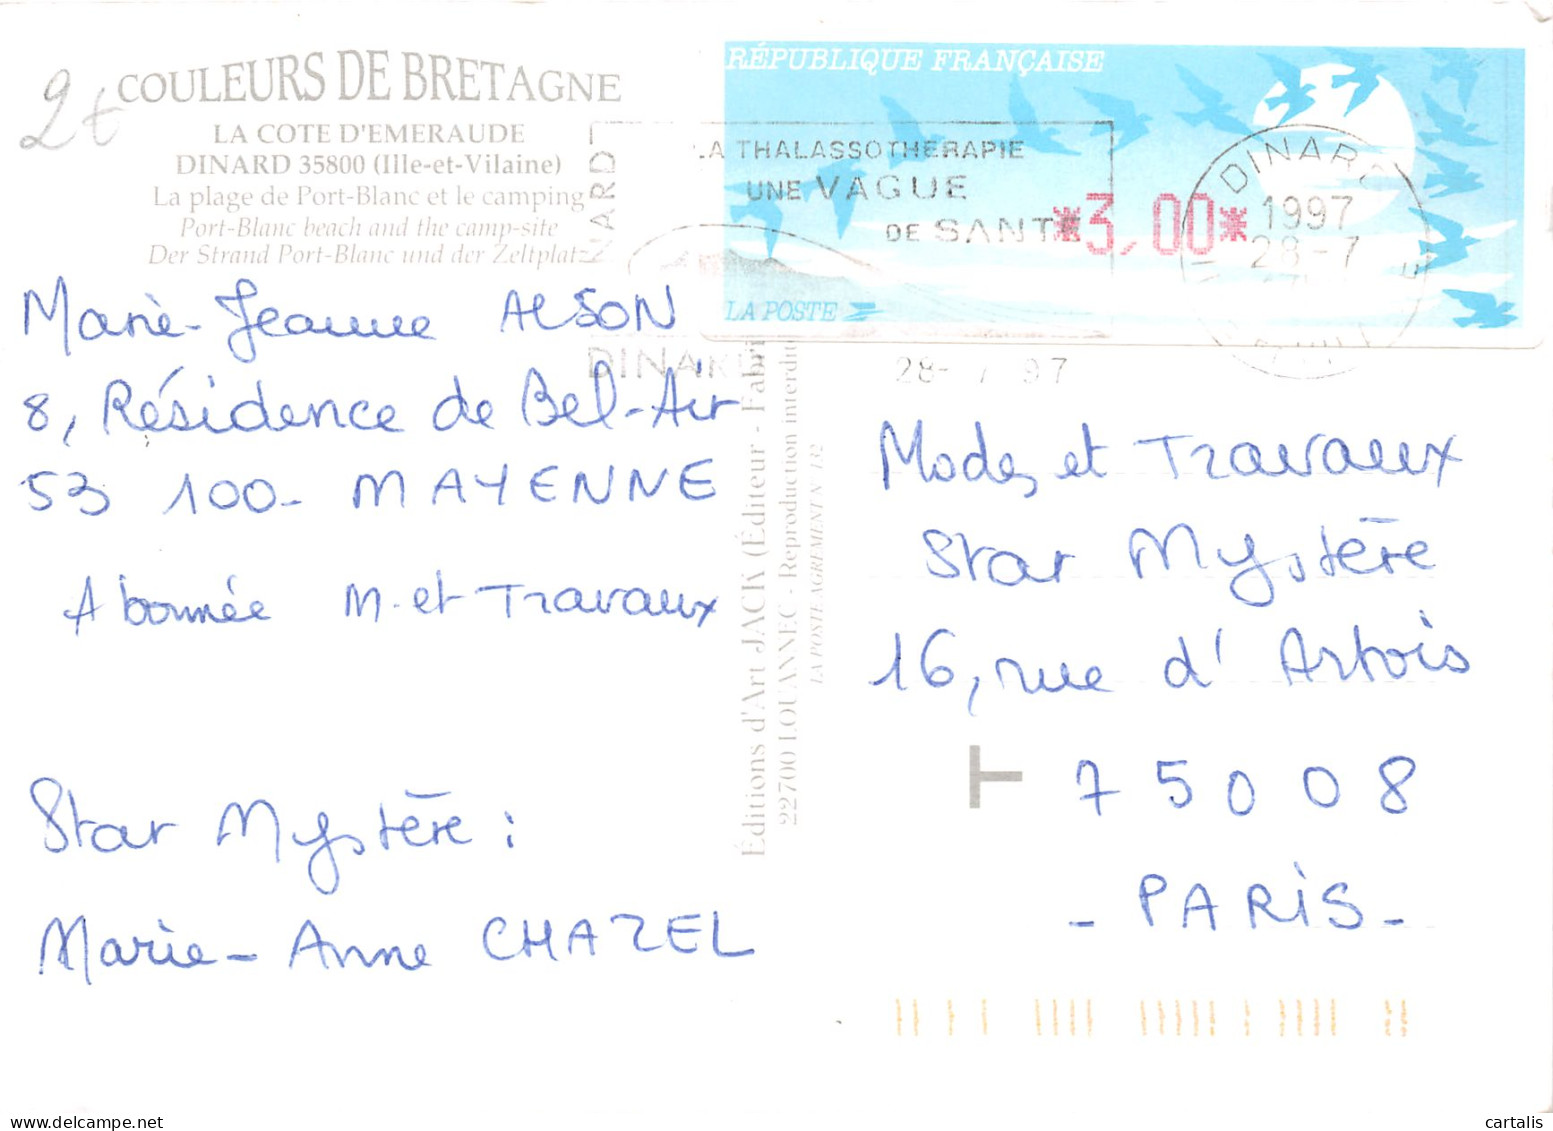 2€
COULEURS DE BRETAGNE
LA COTE D'EMERAUDE
DINARD 35800 (Ille-et-Vilaine)
La plage de Port-Blanc et le camping
Port-Blanc beach and the camp-site
Der Strand Port-Blanc und der Zeltplatz
RÉPUBLIQUE FRANÇAISE
LA THALASSOTHERAPIE
UNE VAGUE
DE SANTE
*3,00*
LA POSTE
DINARD
1997
28-7
DINARD
28- 7 97
Marie-Jeanne ALSON
8, Résidence de Bel-Air
53 100- MAYENNE
Abonnée M-et Travaux
Star Mystère :
Marie-Anne CHAZEL
Éditions d'Art JACK (Éditeur - Fabri
22700 LOUANNEC - Reproduction interdit
LA POSTE AGREMENT N° 132
Modes et Travaux
Star Mystère
16, rue d'Artois
T 75008
- PARIS -
cartalis